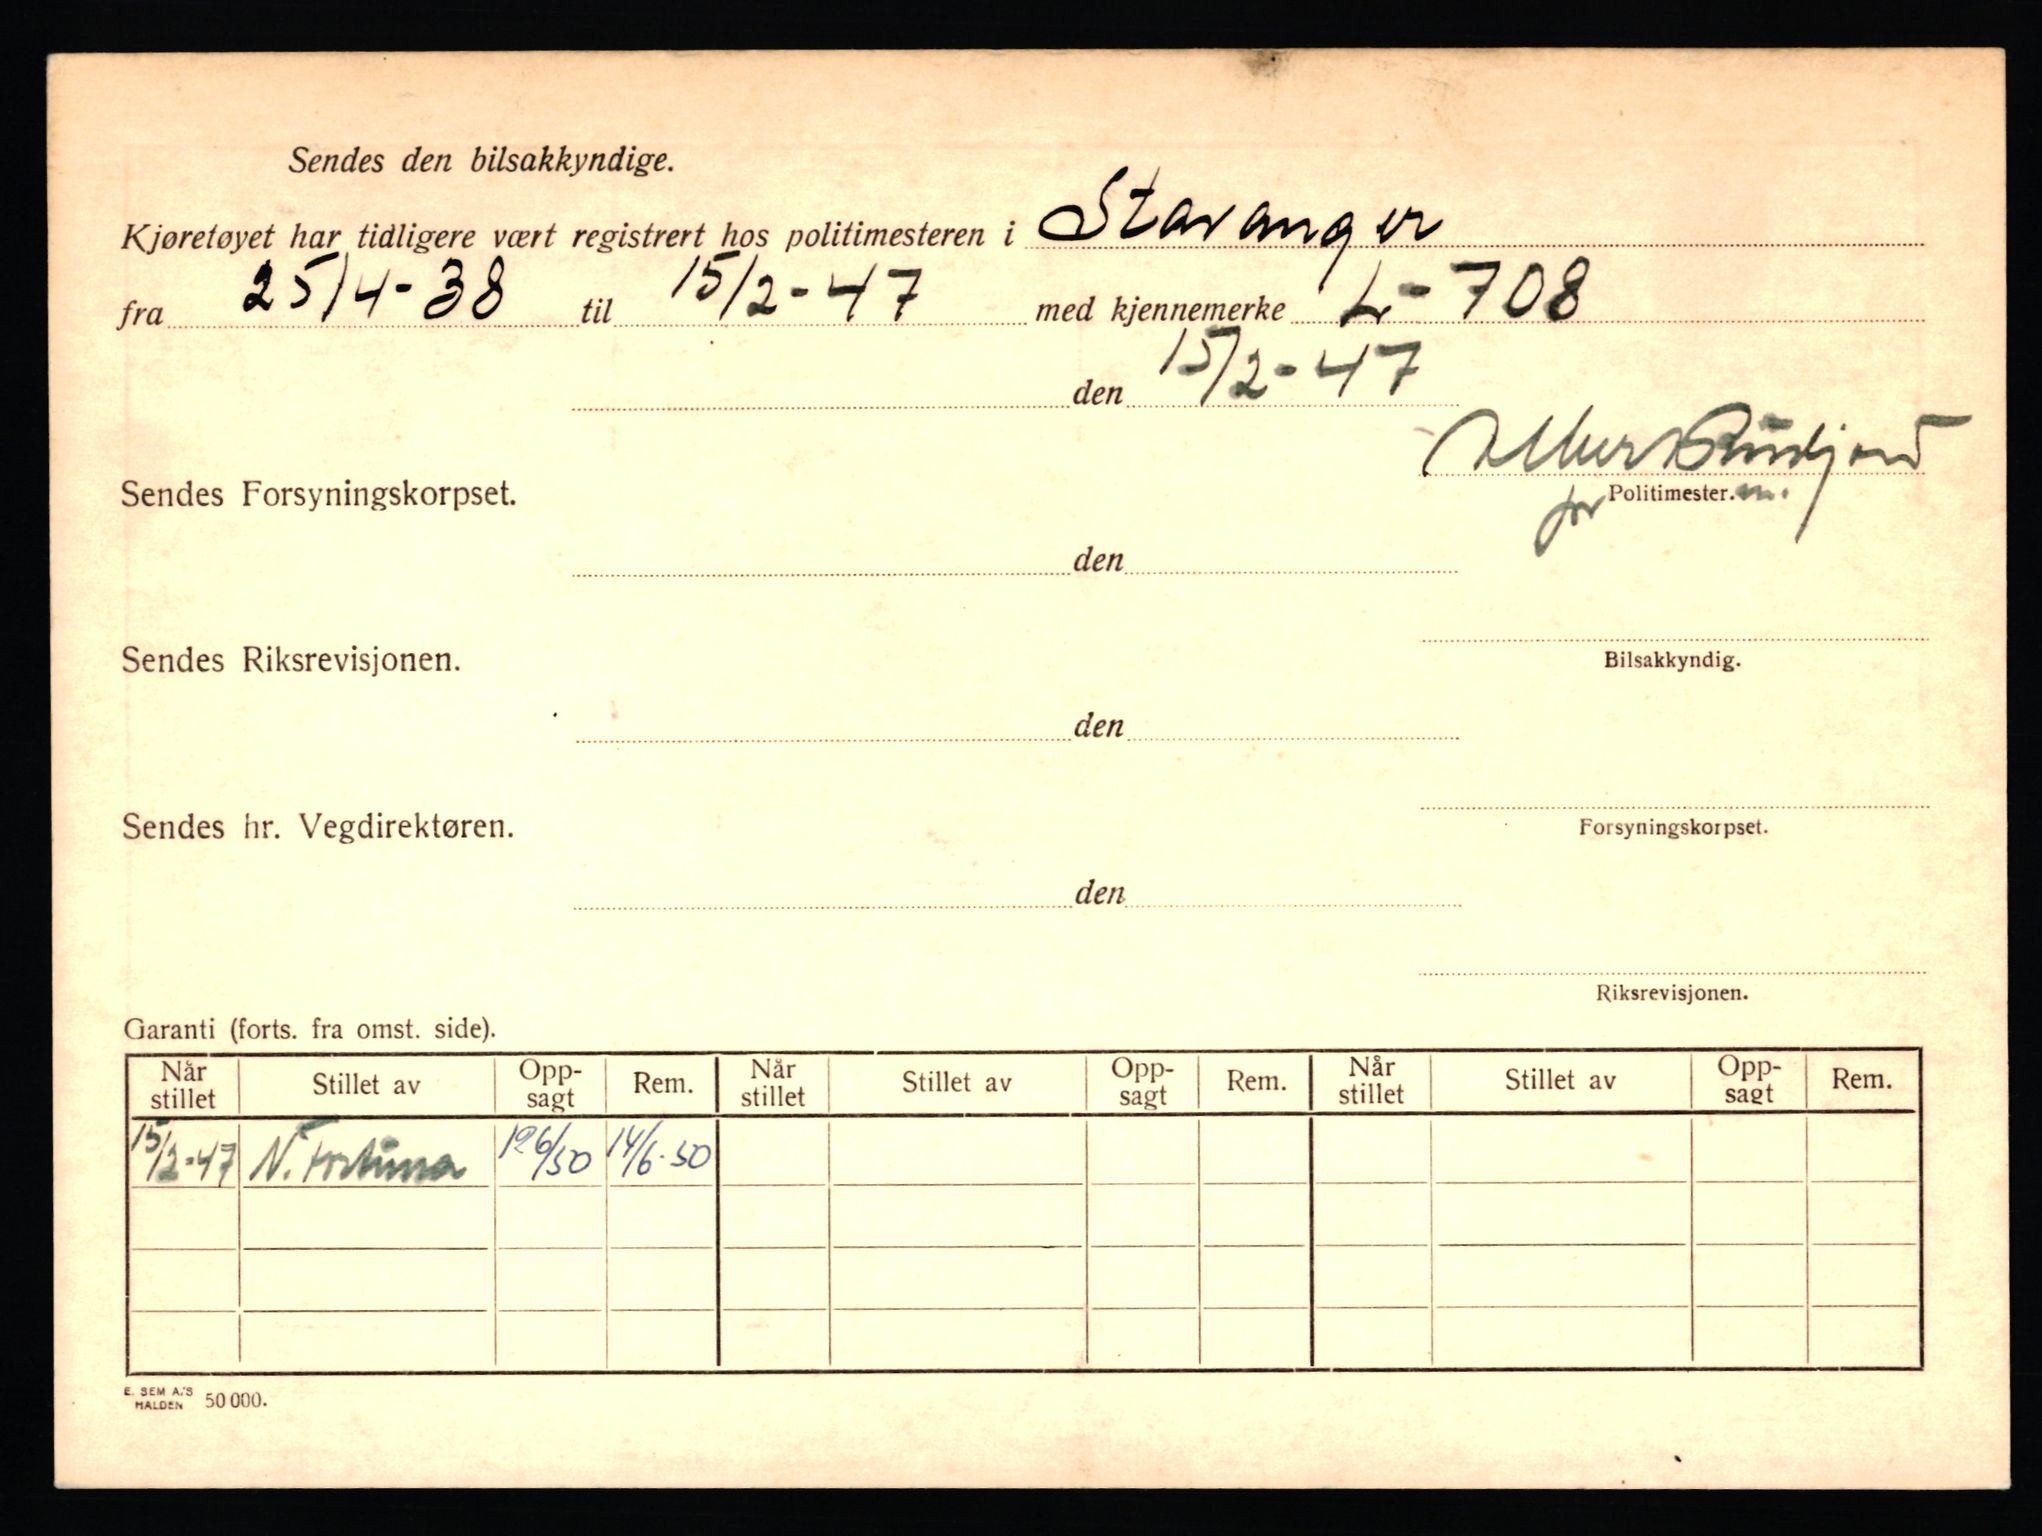 Sendes den bilsakkyndige.
Kjøretøyet har tidligere vært registrert hos politimesteren i Stavanger
fra 25/4-38 til 15/2-47 med kjennemerke L-708
den 15/2-47
Sendes Forsyningskorpset.
for Politimester.m.
den
Sendes Riksrevisjonen.
Bilsakkyndig.
den
Sendes hr. Vegdirektøren.
Forsyningskorpset.
den
Riksrevisjonen.
Garanti (forts. fra omst. side).
Når stillet Stillet av Opp-sagt Rem. Når stillet Stillet av Opp-sagt Rem. Når stillet Stillet av Opp-sagt Rem.
15/2-47 N. Fortuna 6/50 14/6-50
E. SEM A.'S HALDEN 50 000.